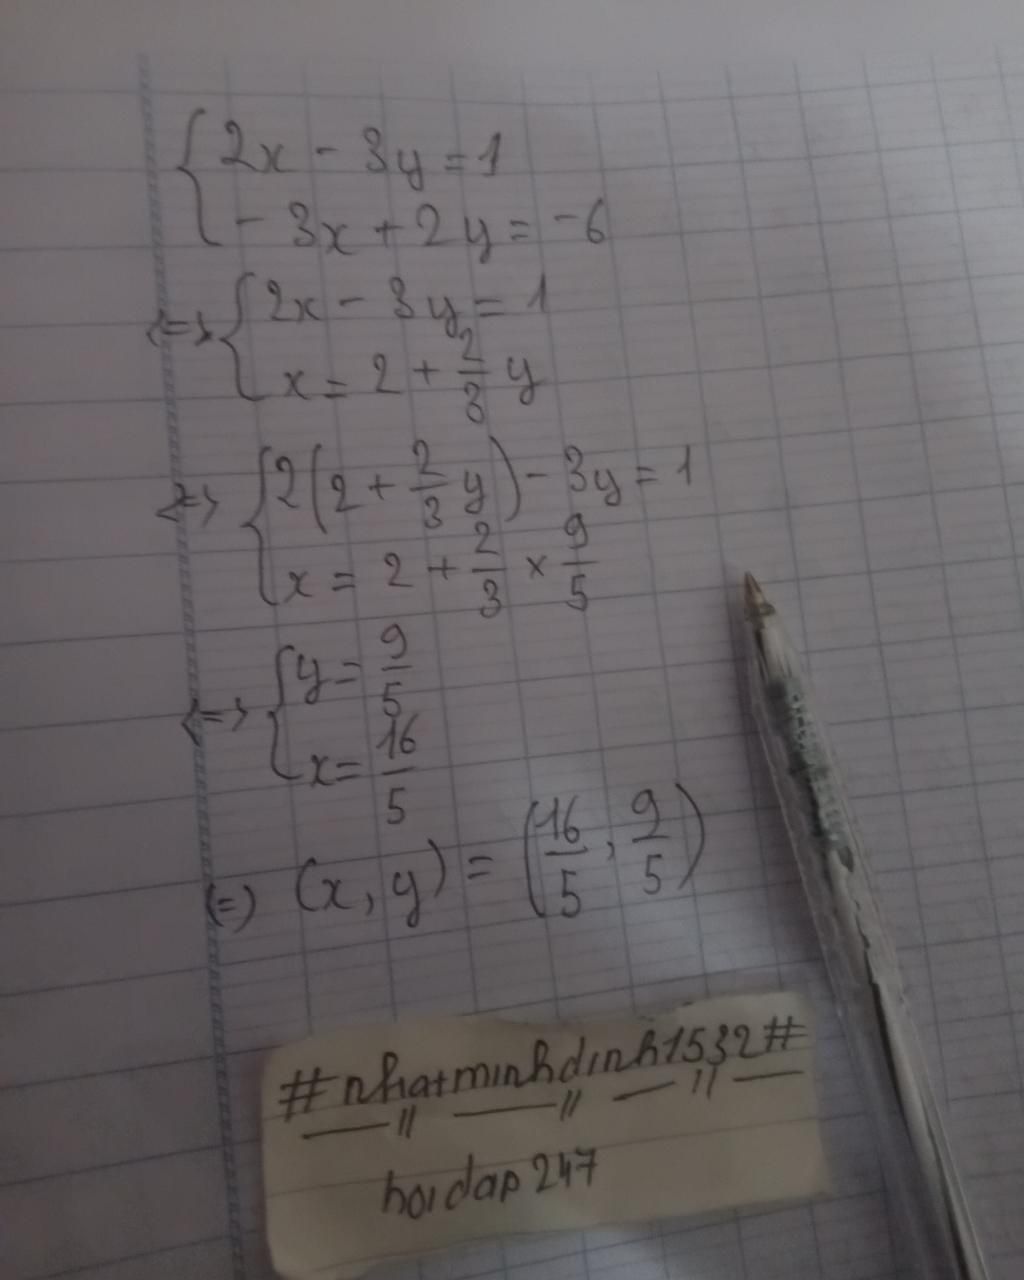 { 2x - 3y = 1
- 3x + 2y = -6
<=> { 2x - 3y = 1
x = 2 + 2/3 y
<=> { 2(2 + 2/3 y) - 3y = 1
x = 2 + 2/3 × 9/5
<=> { y = 9/5
x = 16/5
(=) (x, y) = (16/5, 9/5)
#nhatminhdinh1532#
hoidap247